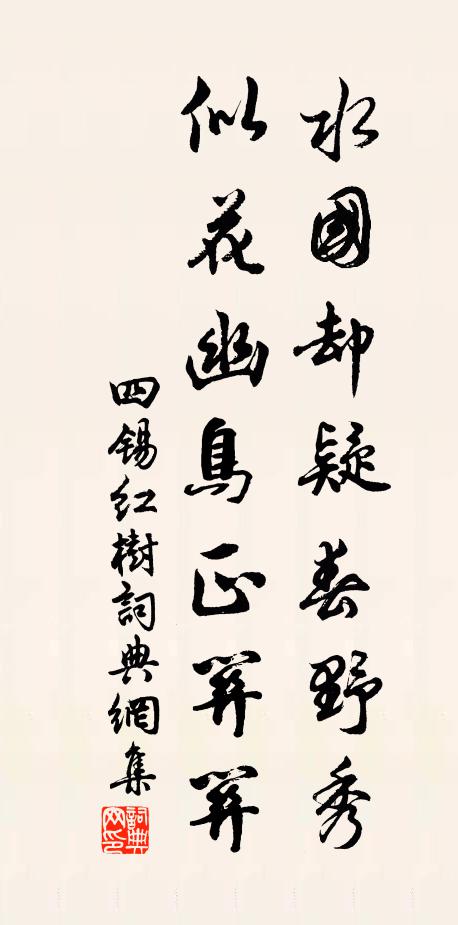 水國却疑春野秀
似花幽鳥正關關
四錫紅樹詞典網集
詞典网印